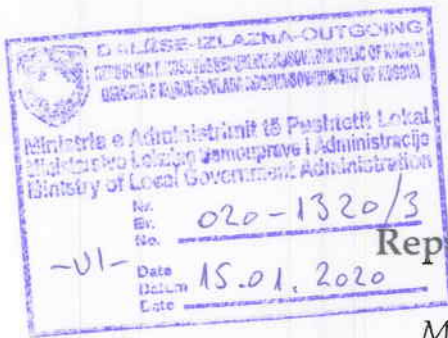 DALËSE-IZLAZNA-OUTGOING
Ministria e Administrimit të Pushtetit Lokal
Ministarstvo Lokalne Samouprave i Administracije
Ministry of Local Government Administration
Nr.
Br. 020-1320/3
No.
-01-
Rep
Date
Datum 15.01.2020
Date
M